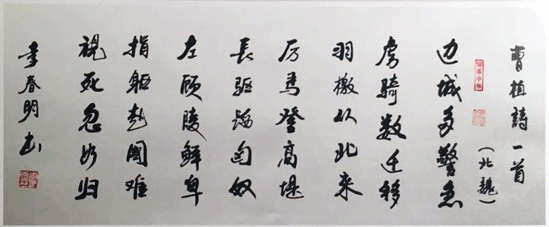 曹植詩一首
（北魏）
边城多警急
虏骑数迁移
羽檄从北来
厉马登高堤
長驱蹈匈奴
左顾陵鲜卑
捐躯赴国难
视死忽如归
李春明书